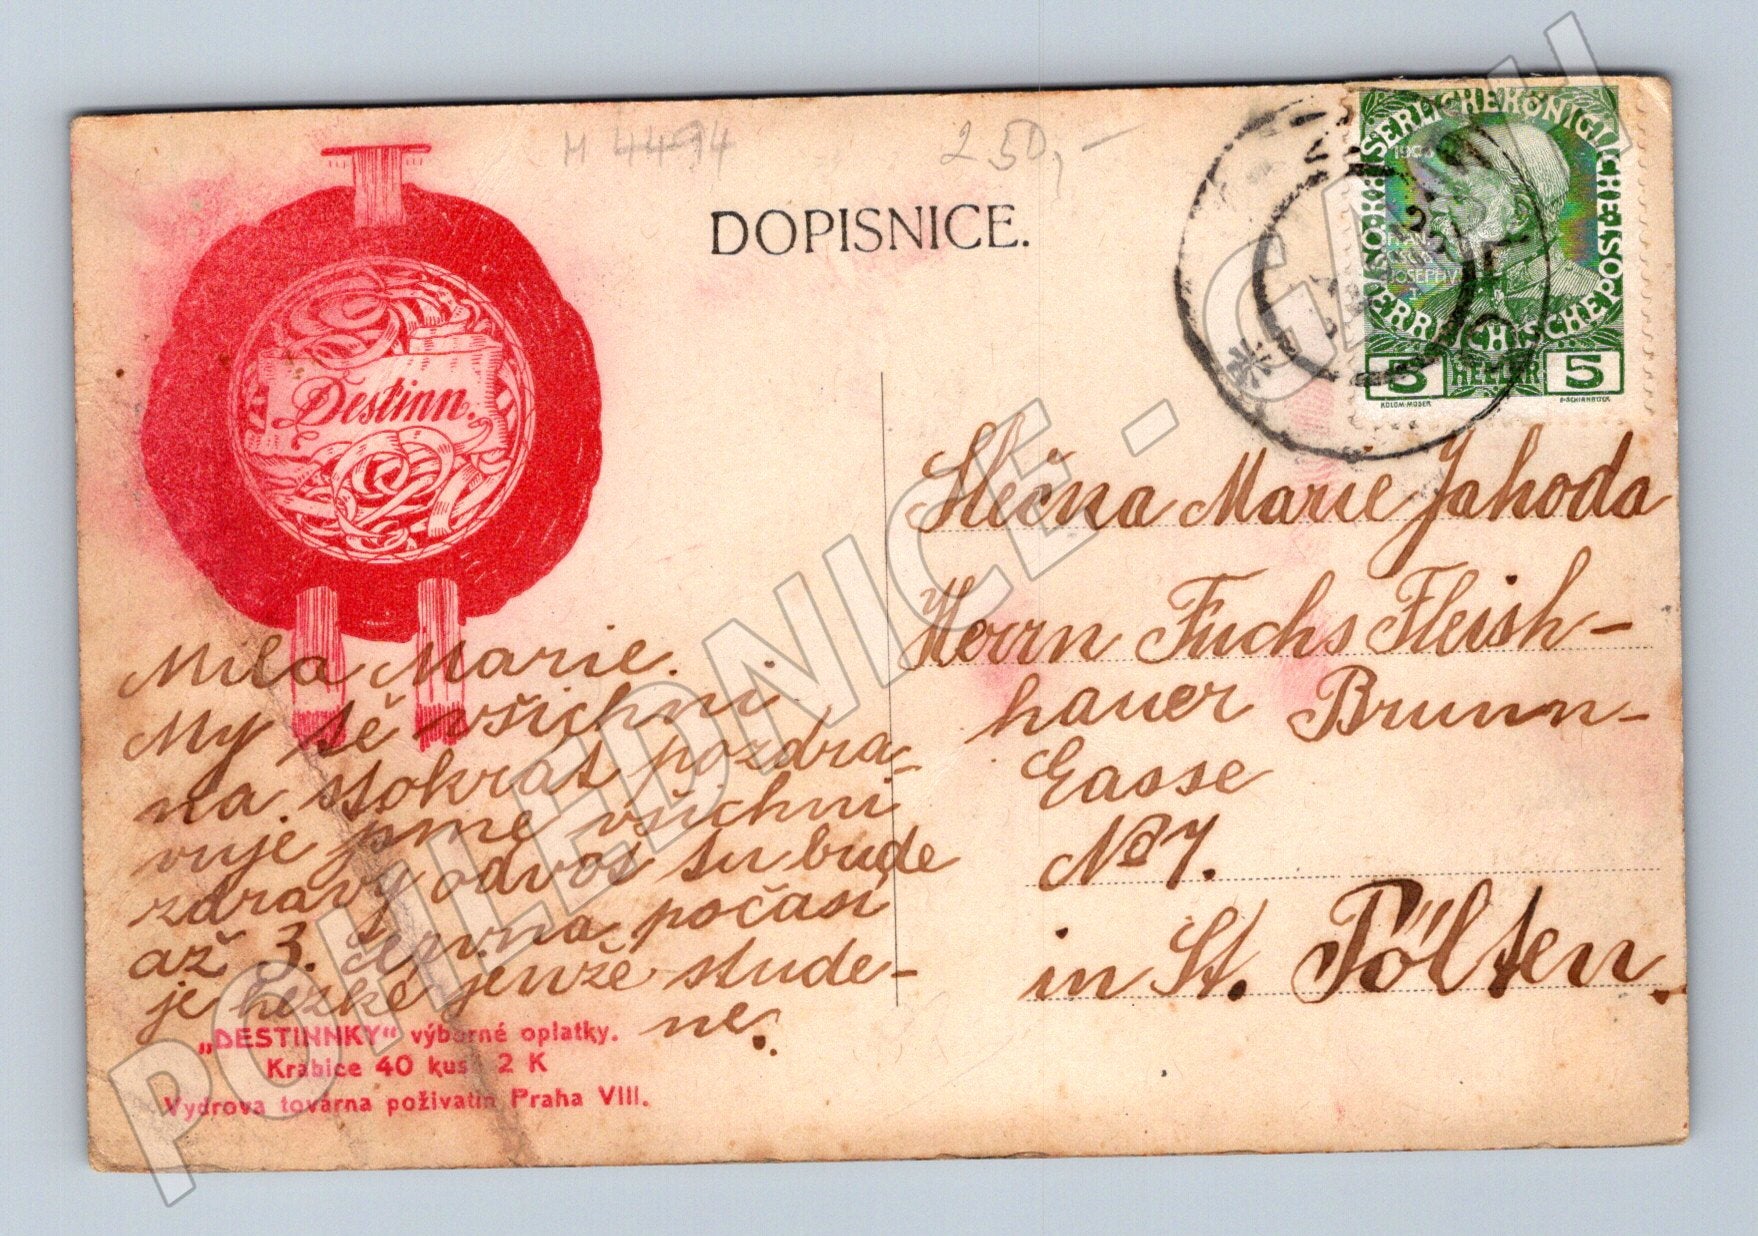 H 4494
250,-
DOPISNICE.
KAISERLICHE KÖNIGLICHE
ÖSTERREICHISCHE POST
1908
5 HELLER 5
KOLOM·MOSER
Destinn.
Slečna Marie Jahoda
Herrn Fuchs Fleish-
hauer Brunn-
Gasse
No 7.
in St. Pölten.
Mila Marie.
My tě všichni
na stokrat pozdra-
vuje jsme všichni
zdravy odvos tu bude
až 3. června počasi
je hezke jenže stude-
ne.
„DESTINNKY“ výborné oplatky.
Krabice 40 kusů 2 K
Vydrova továrna poživatin Praha VIII.
POHLEDNICE - GACH